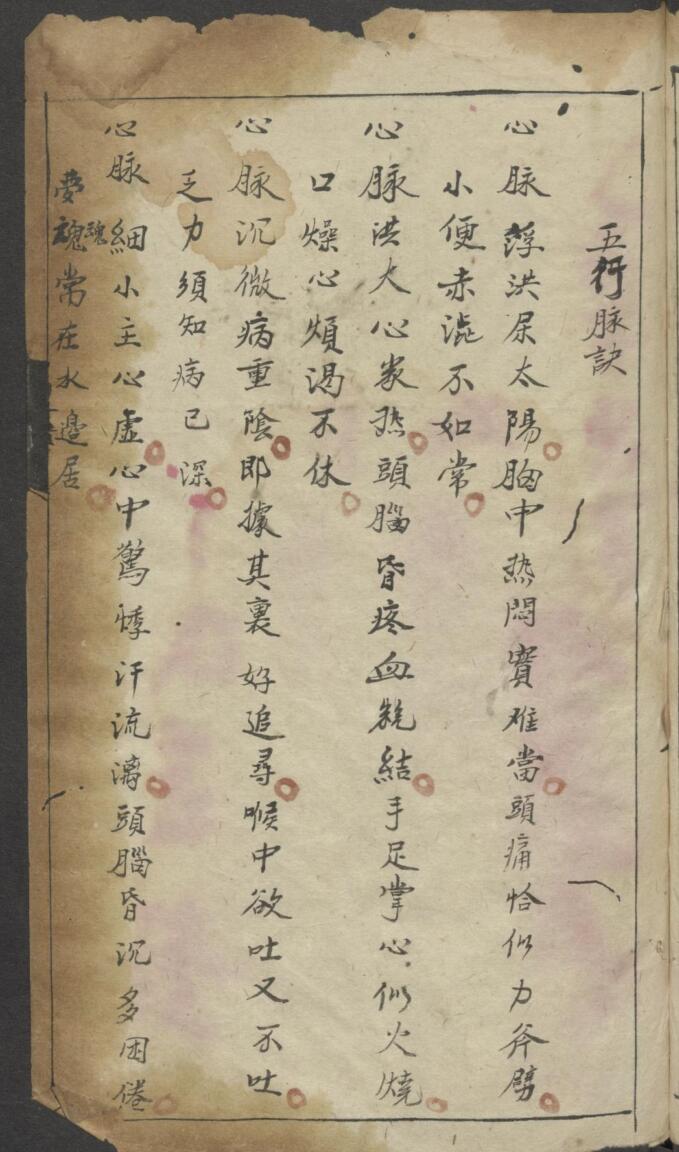 五行脉訣
心脉浮洪尿太陽胸中热悶實难當頭痛恰似力斧劈
小便赤澁不如常
心脉洪大心家热頭腦昏疼血𣱛結手足掌心似火燒
口燥心煩渴不休
心脉沉微病重陰即據其裏好追尋喉中欲吐又不吐
乏力須知病已深
心脉細小主心虛心中驚悸汗流漓頭腦昏沉多困倦
夢魂魂常在水邊居